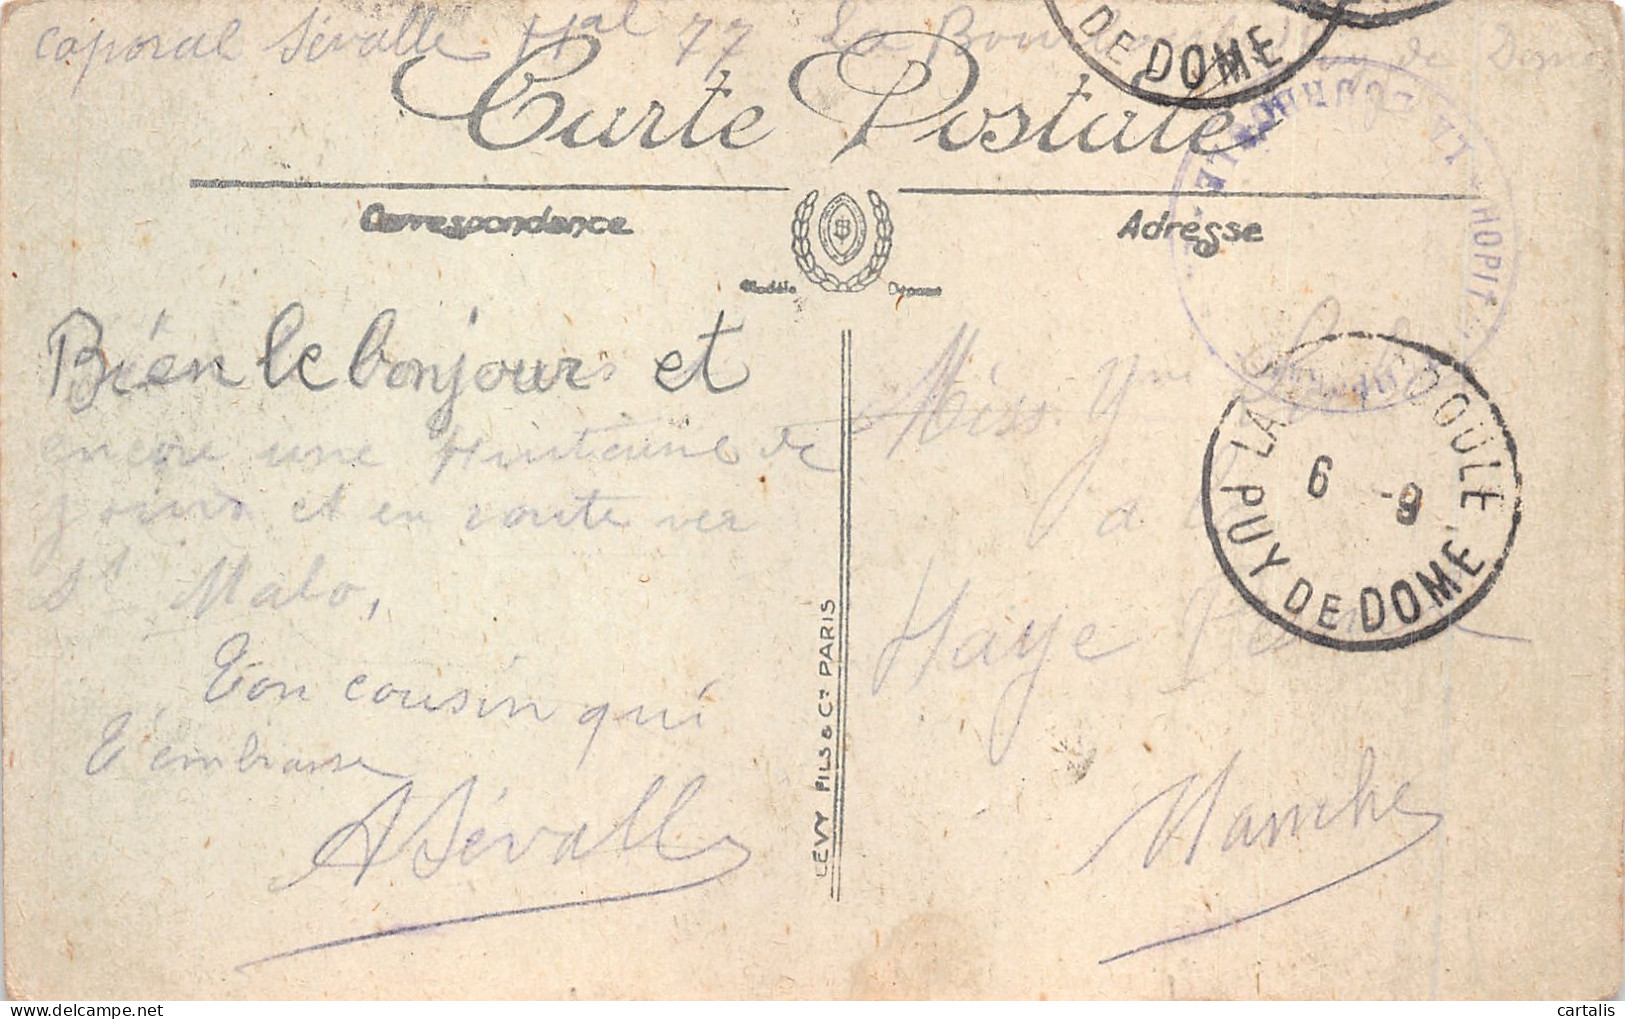 caporal Sévalle Hal 77 La Bourboule Puy de Dome
DE DOME
Carte Postale
LA BOURBOULE HOPIT
Correspondance
Adresse
Modèle Déposé
Bien le bonjours et
encore une Huitaine de
jours et en route ver
St Malo,
Ton cousin qui
t'embrasse
A Sévalle
Miss. Yne
a la
Haye
Manche
LA BOURBOULE
6 -9
PUY DE DOME
LÉVY FILS & Cie PARIS
cartalis